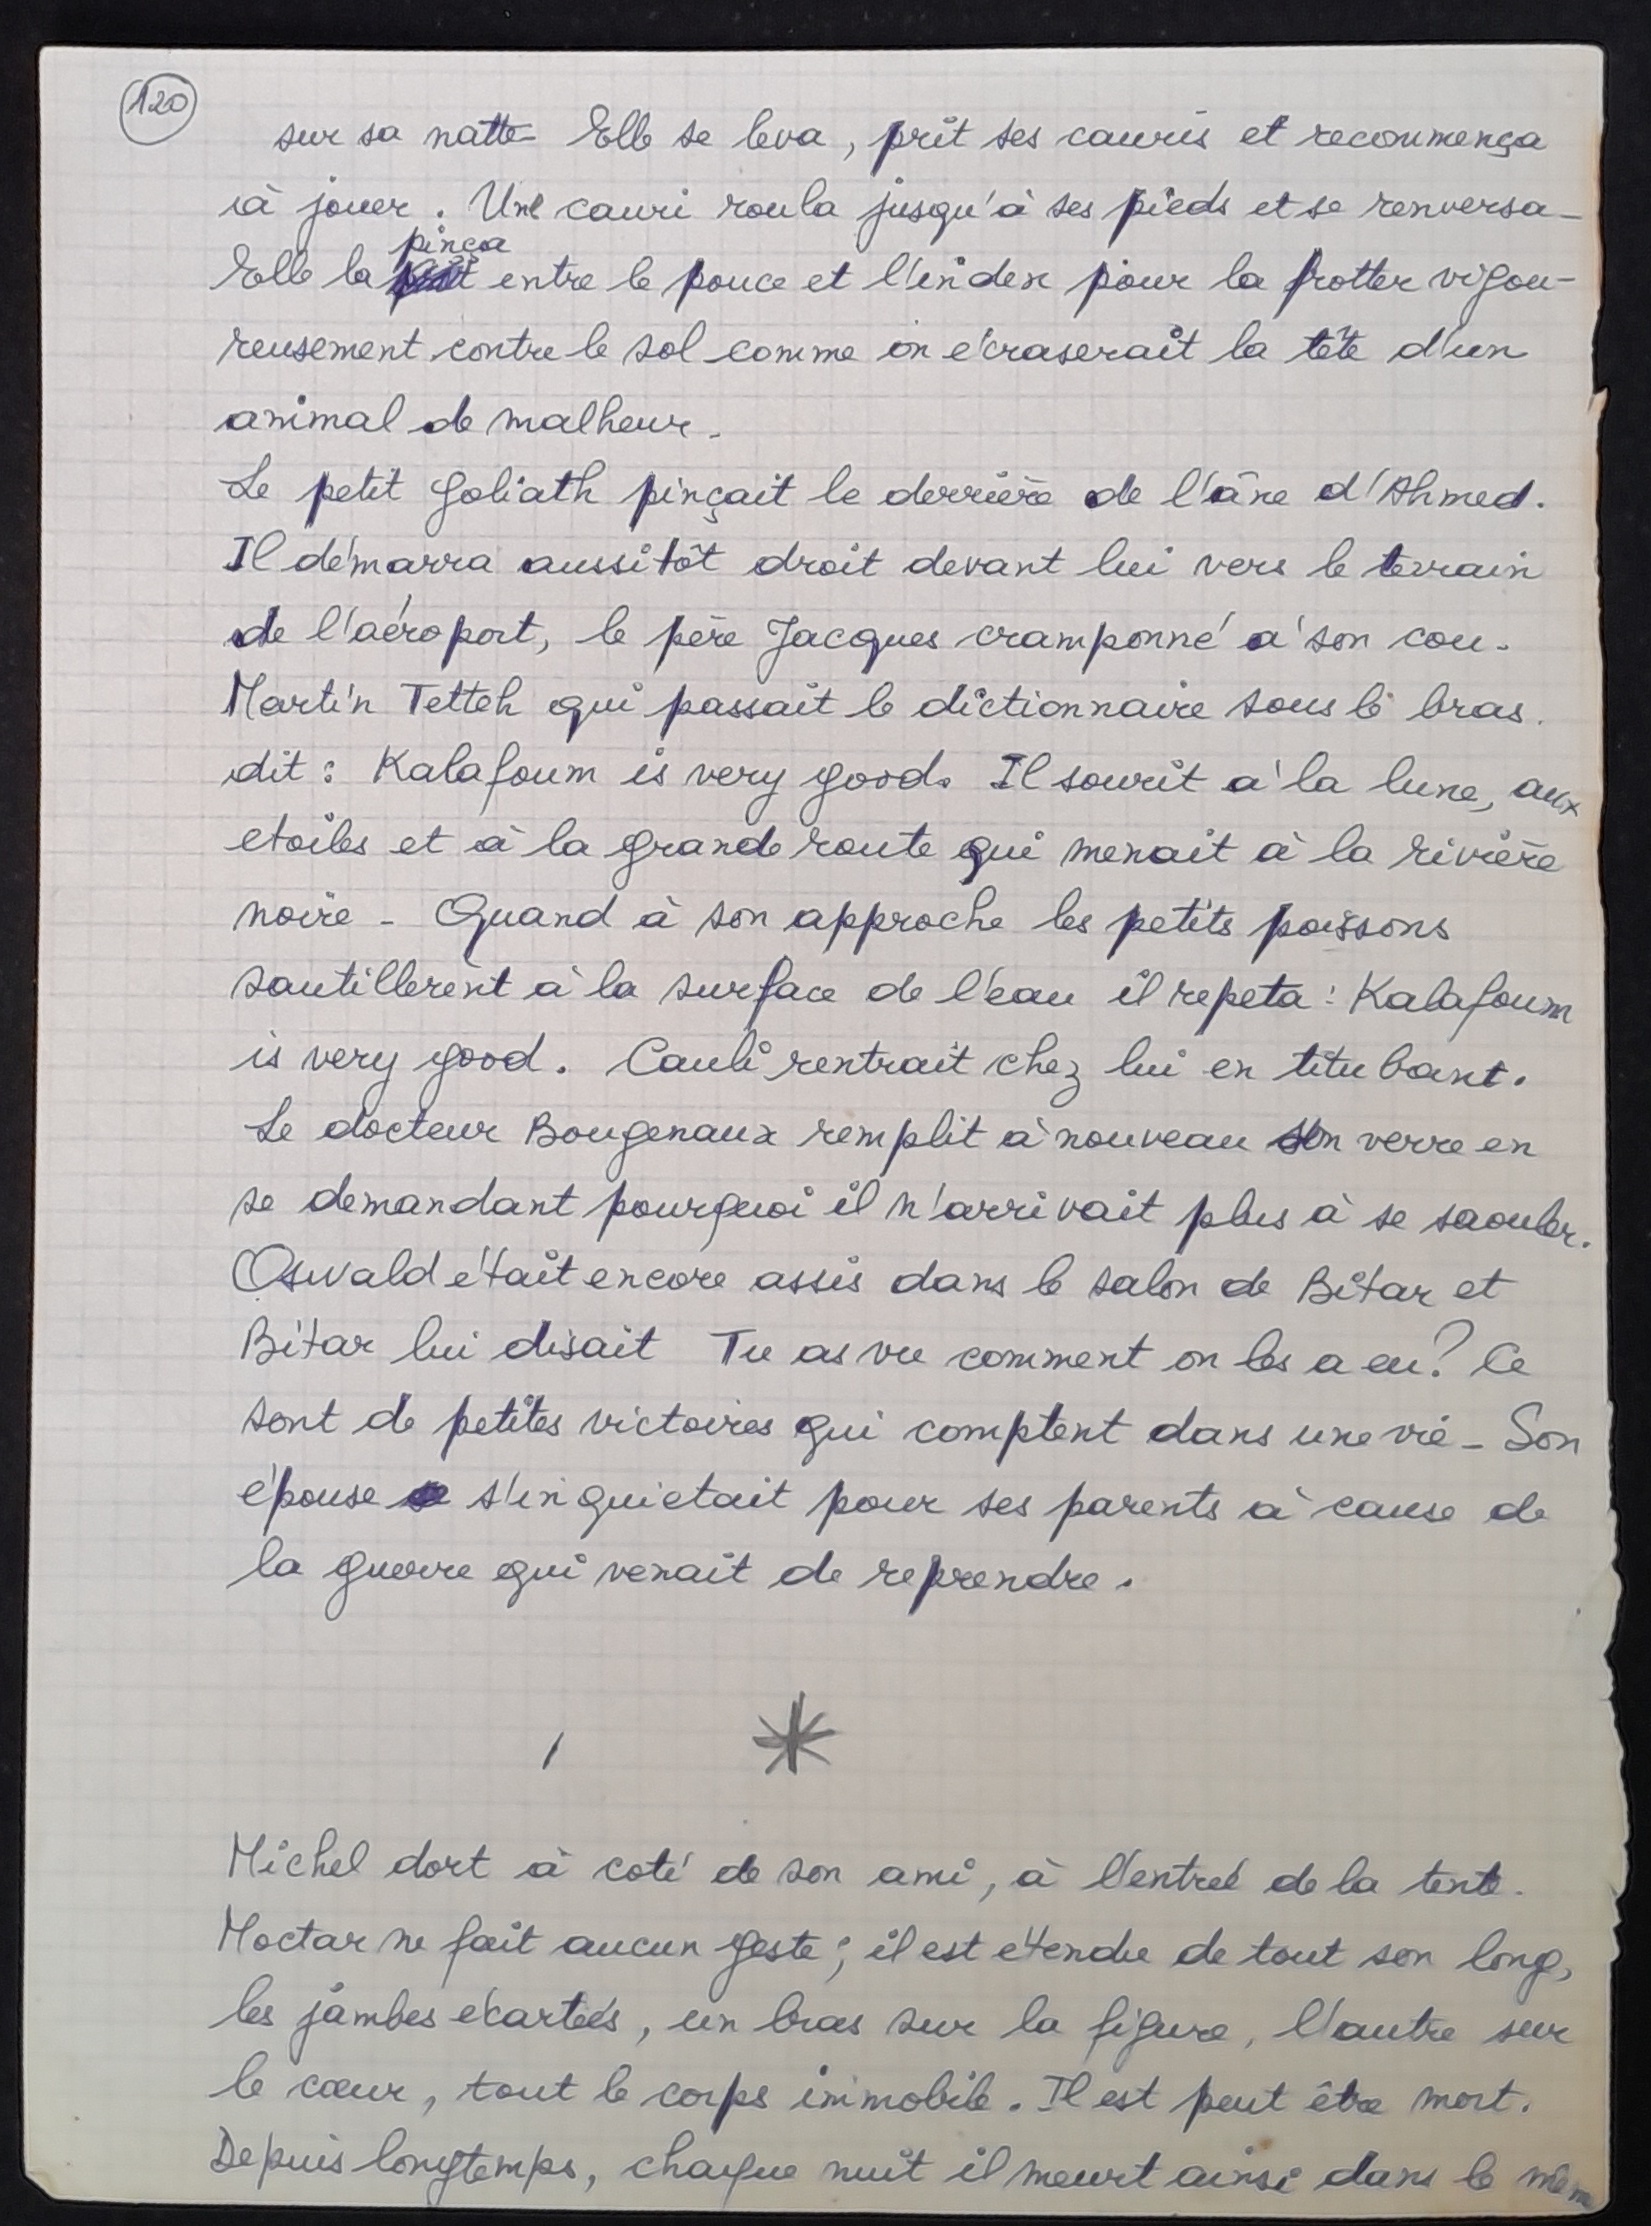 120
sur sa natte - Elle se leva, prit ses cauris et recommença
à jouer. Une cauri roula jusqu'à ses pieds et se renversa -
pinça
Elle la entre le pouce et l'index pour la frotter vigou-
reusement contre le sol comme on écraserait la tête d'un
animal de malheur.
Le petit Goliath pinçait le derrière de l'âne d'Ahmed.
Il démarra aussitôt droit devant lui vers le terrain
de l'aéroport, le père Jacques cramponné à son cou.
Martin Tetteh qui passait le dictionnaire sous le bras.
dit : Kalafoum is very good. Il sourit à la lune, aux
etoiles et à la grande route qui menait à la rivière
noire - Quand à son approche les petits poissons
sautillerent à la surface de l'eau il repeta : Kalafoum
is very good. Cauli rentrait chez lui en titubant.
Le docteur Bougenaux remplit à nouveau son verre en
se demandant pourquoi il n'arrivait plus à se saouler.
Oswald était encore assis dans le salon de Bitar et
Bitar lui disait Tu as vu comment on les a eu ? Ce
sont de petites victoires qui comptent dans une vie - Son
épouse s'inquietait pour ses parents à cause de
la guerre qui venait de reprendre.
*
Michel dort à coté de son ami, à l'entrée de la tente.
Moctar ne fait aucun geste ; il est étendu de tout son long,
les jambes écartées, un bras sur la figure, l'autre sur
le cœur, tout le corps immobile. Il est peut être mort.
Depuis longtemps, chaque nuit il meurt ainsi dans le même